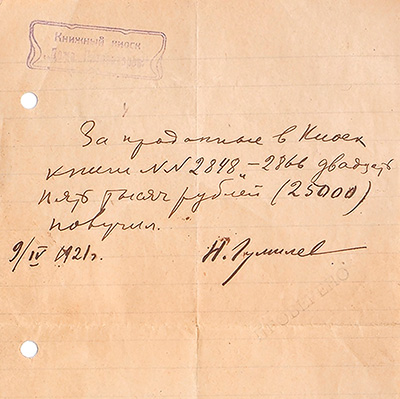 Книжный киоск
За проданные в Киоск
книги NN 2848 – 2866 двадцать
пять тысяч рублей (25000)
получил.
9/IV 1921г. Н. Гумилев
ПРОВЕРЕНО